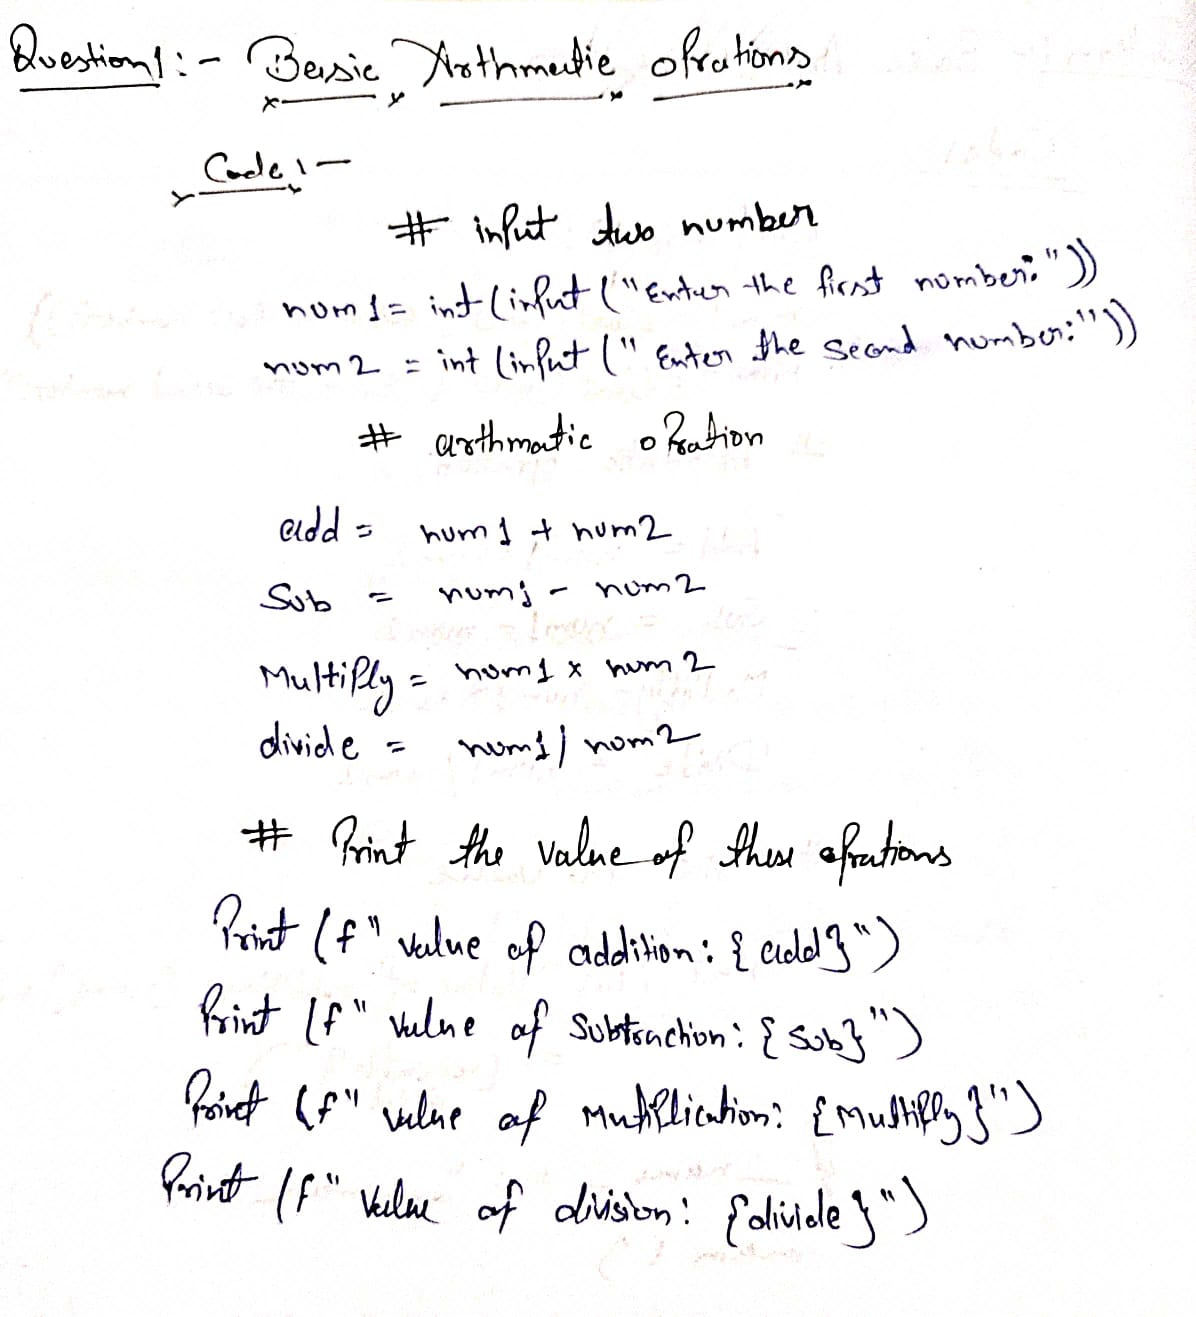 Question1:- Basic Arthmetic oprations
Code:-
# input two number
num1= int(input("Enter the first number:"))
num2 = int(input("Enter the second number:"))
# arthmatic opration
add = num1 + num2
Sub = num1 - num2
Multiply = num1 x num2
divide = num1/num2
# Print the value of these oprations
Print (f"value of addition: {add}")
Print (f"value of Subtraction: {Sub}")
Print (f"value of Mutiplication: {Multiply}")
Print (f"Value of division: {divide}")